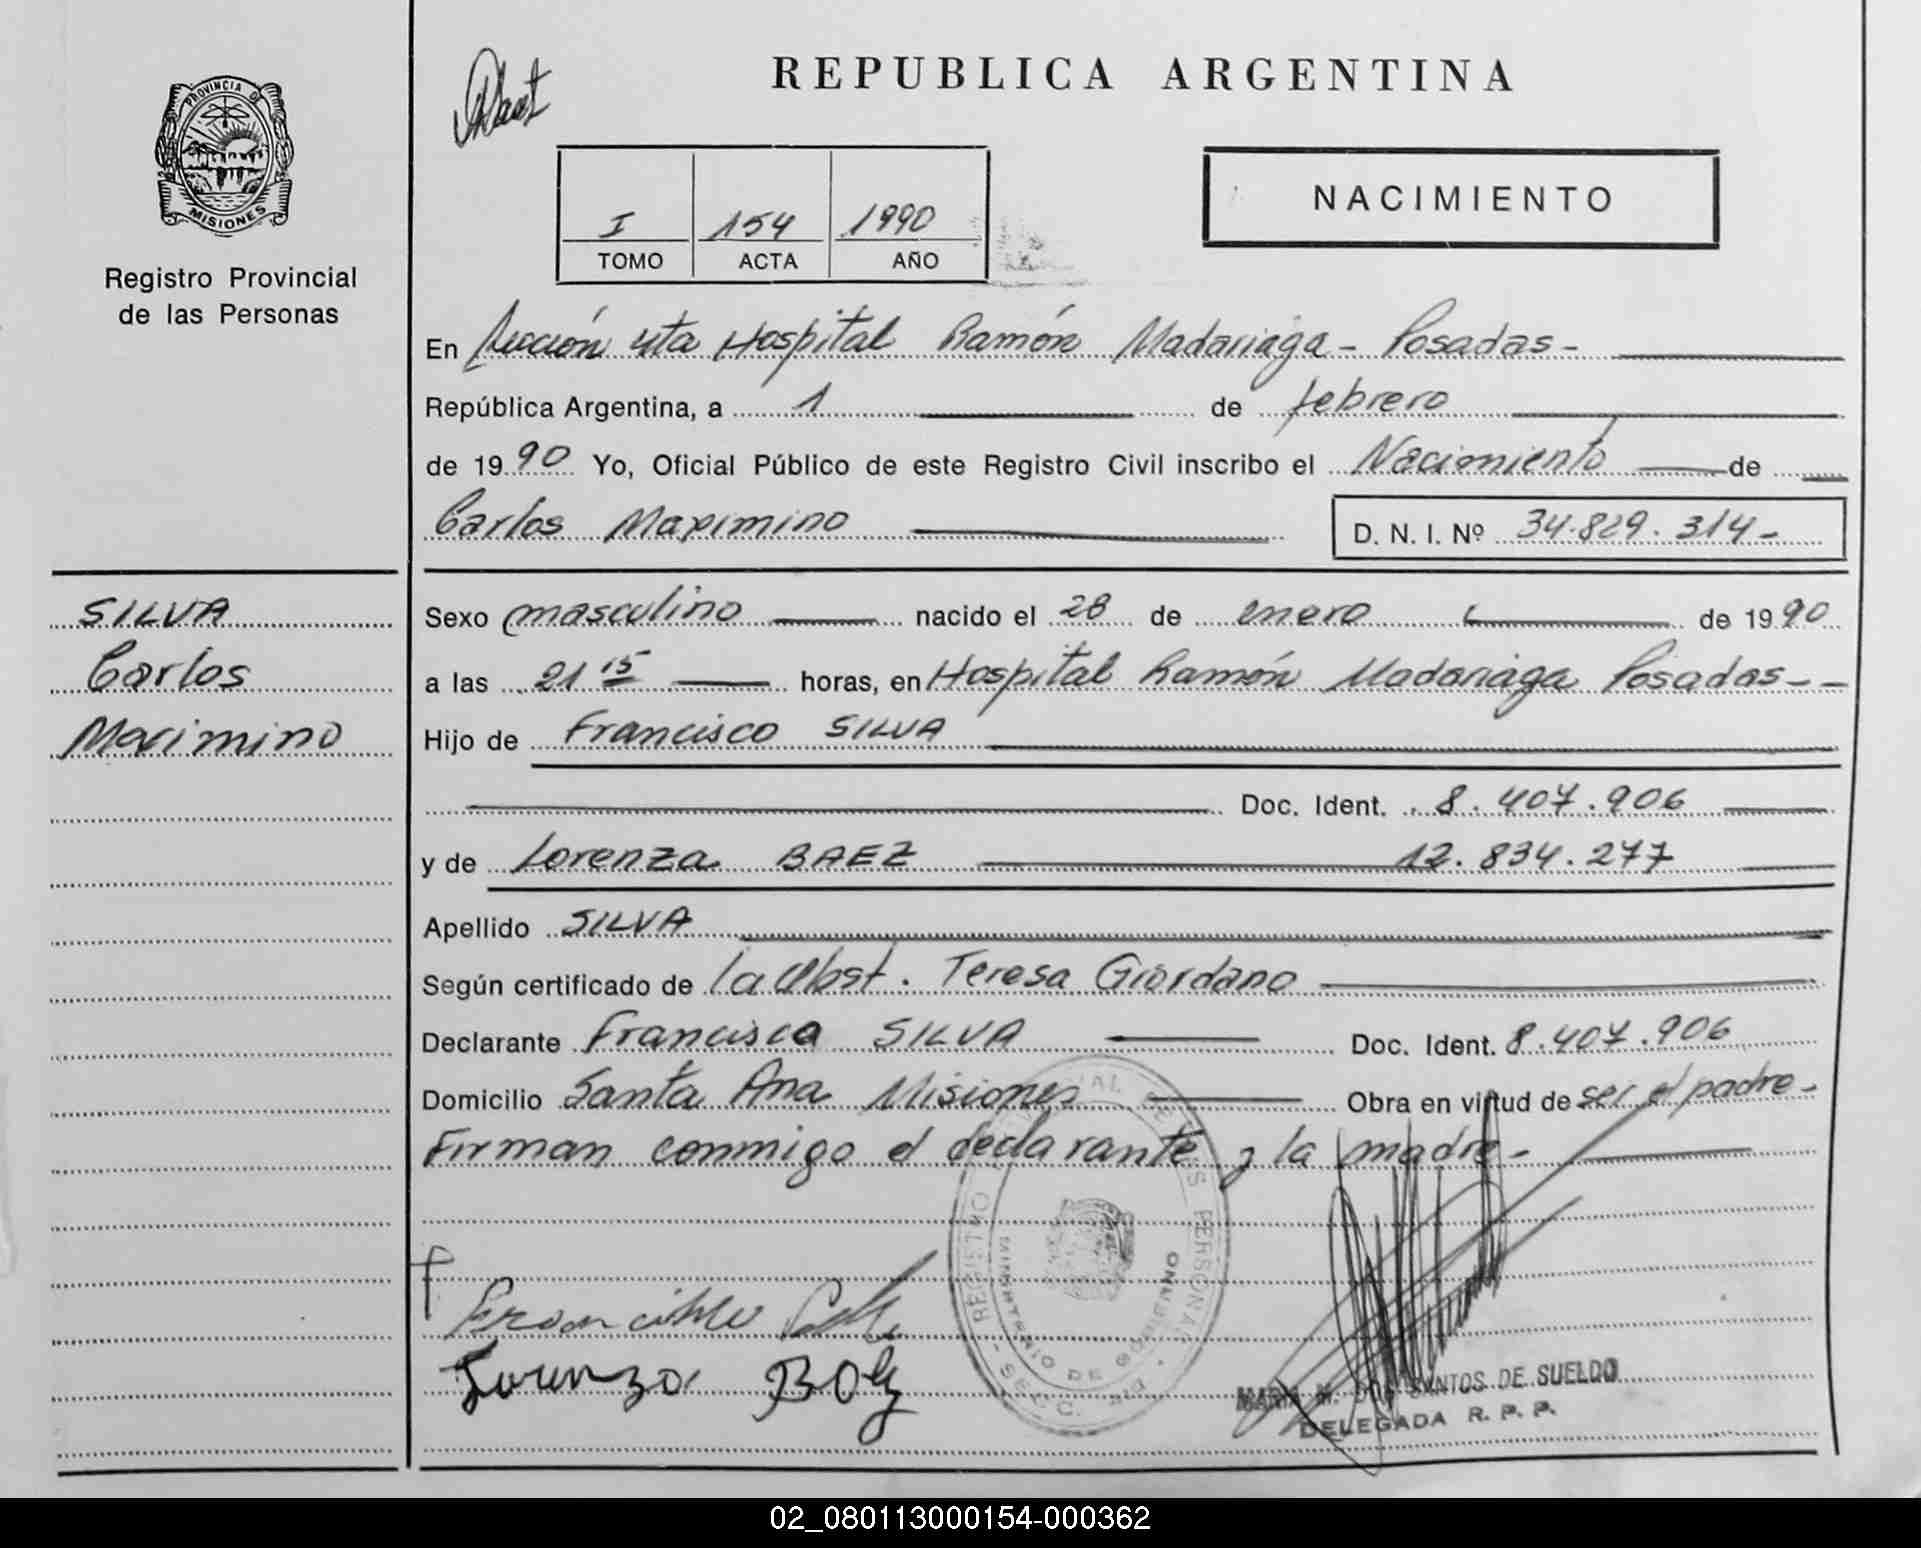 REPUBLICA ARGENTINA
PROVINCIA DE
MISIONES
Registro Provincial
de las Personas
I 154 1990
TOMO ACTA AÑO
NACIMIENTO
En Sección 4ta Hospital Ramón Madariaga - Posadas -
República Argentina, a 1 de febrero
de 1990 Yo, Oficial Público de este Registro Civil inscribo el Nacimiento de
Carlos Maximino D. N. I. Nº 34.829.314-
SILVA
Carlos
Maximino
Sexo masculino nacido el 28 de enero de 1990
a las 21 15 horas, en Hospital Ramón Madariaga Posadas--
Hijo de Francisco SILVA
Doc. Ident. 8.407.906
y de Lorenza BAEZ 12.834.277
Apellido SILVA
Según certificado de la Obst. Teresa Giordano
Declarante Francisco SILVA Doc. Ident. 8.407.906
Domicilio Santa Ana Misiones Obra en virtud de ser el padre-
Firman conmigo el declarante y la madre-
REGISTRO PERSONAS
MINISTERIO DE GOBIERNO
Lorenza
MARIA M. DOS SANTOS DE SUELDO
DELEGADA R. P. P.
02_080113000154-000362